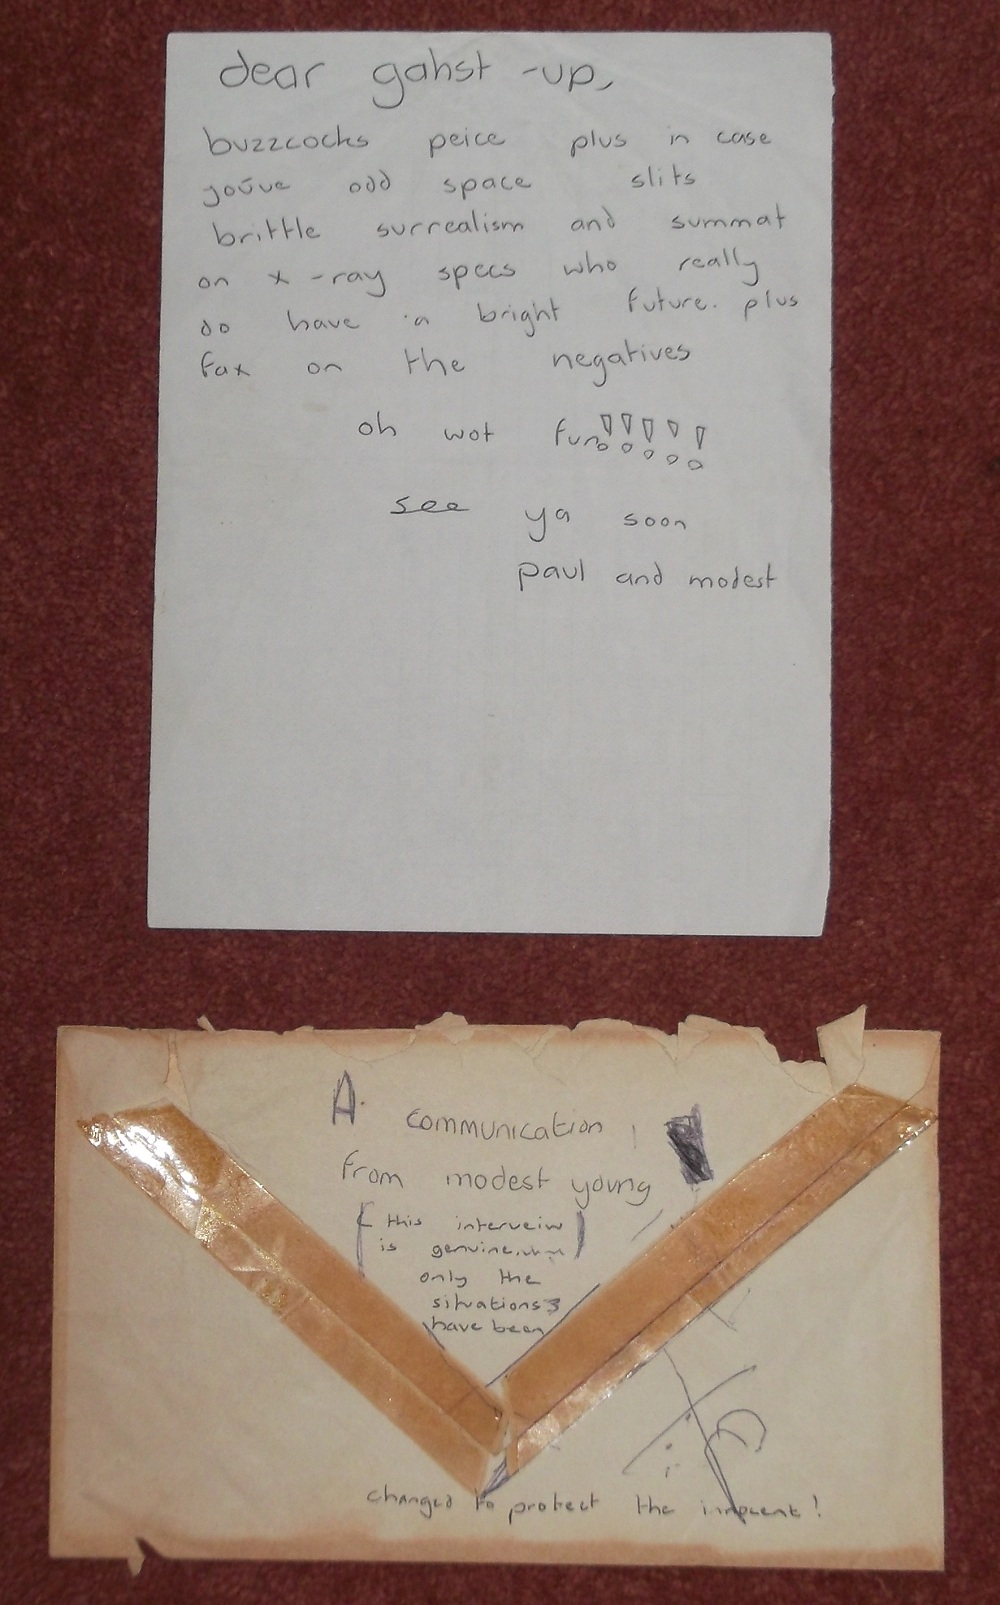 dear gahst-up,
buzzcocks peice plus in case
youve odd space slits
brittle surrealism and summat
on x-ray specs who really
do have a bright future. plus
fax on the negatives
oh wot fun!!!!!
see ya soon
paul and modest
A. communication
from modest young
[this interveiw]
is genuine
only the
situations
have been
changed to protect the innocent!